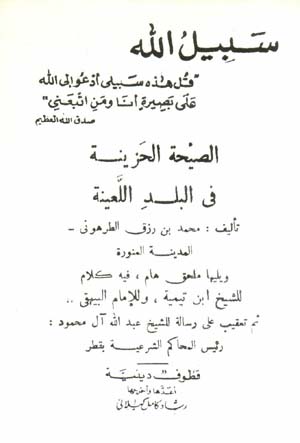 سبيل الله
"قل هذه سبيلى أدعو إلى الله
على بصيرة أنا ومن اتبعنى"
صدق الله العظيم
الصيحة الحزينة
فى البلد اللعينة
تأليف : محمد بن رزق الطرهونى -
المدينة المنورة
ويليها ملحق هام ، فيه كلام
للشيخ ابن تيمية ، وللإمام البيهقى ..
ثم تعقيب على رسالة للشيخ عبد الله آل محمود :
رئيس المحاكم الشرعية بقطر
قطوف دينية
أعدها وأخرجها
رشاد كامل كيلانى